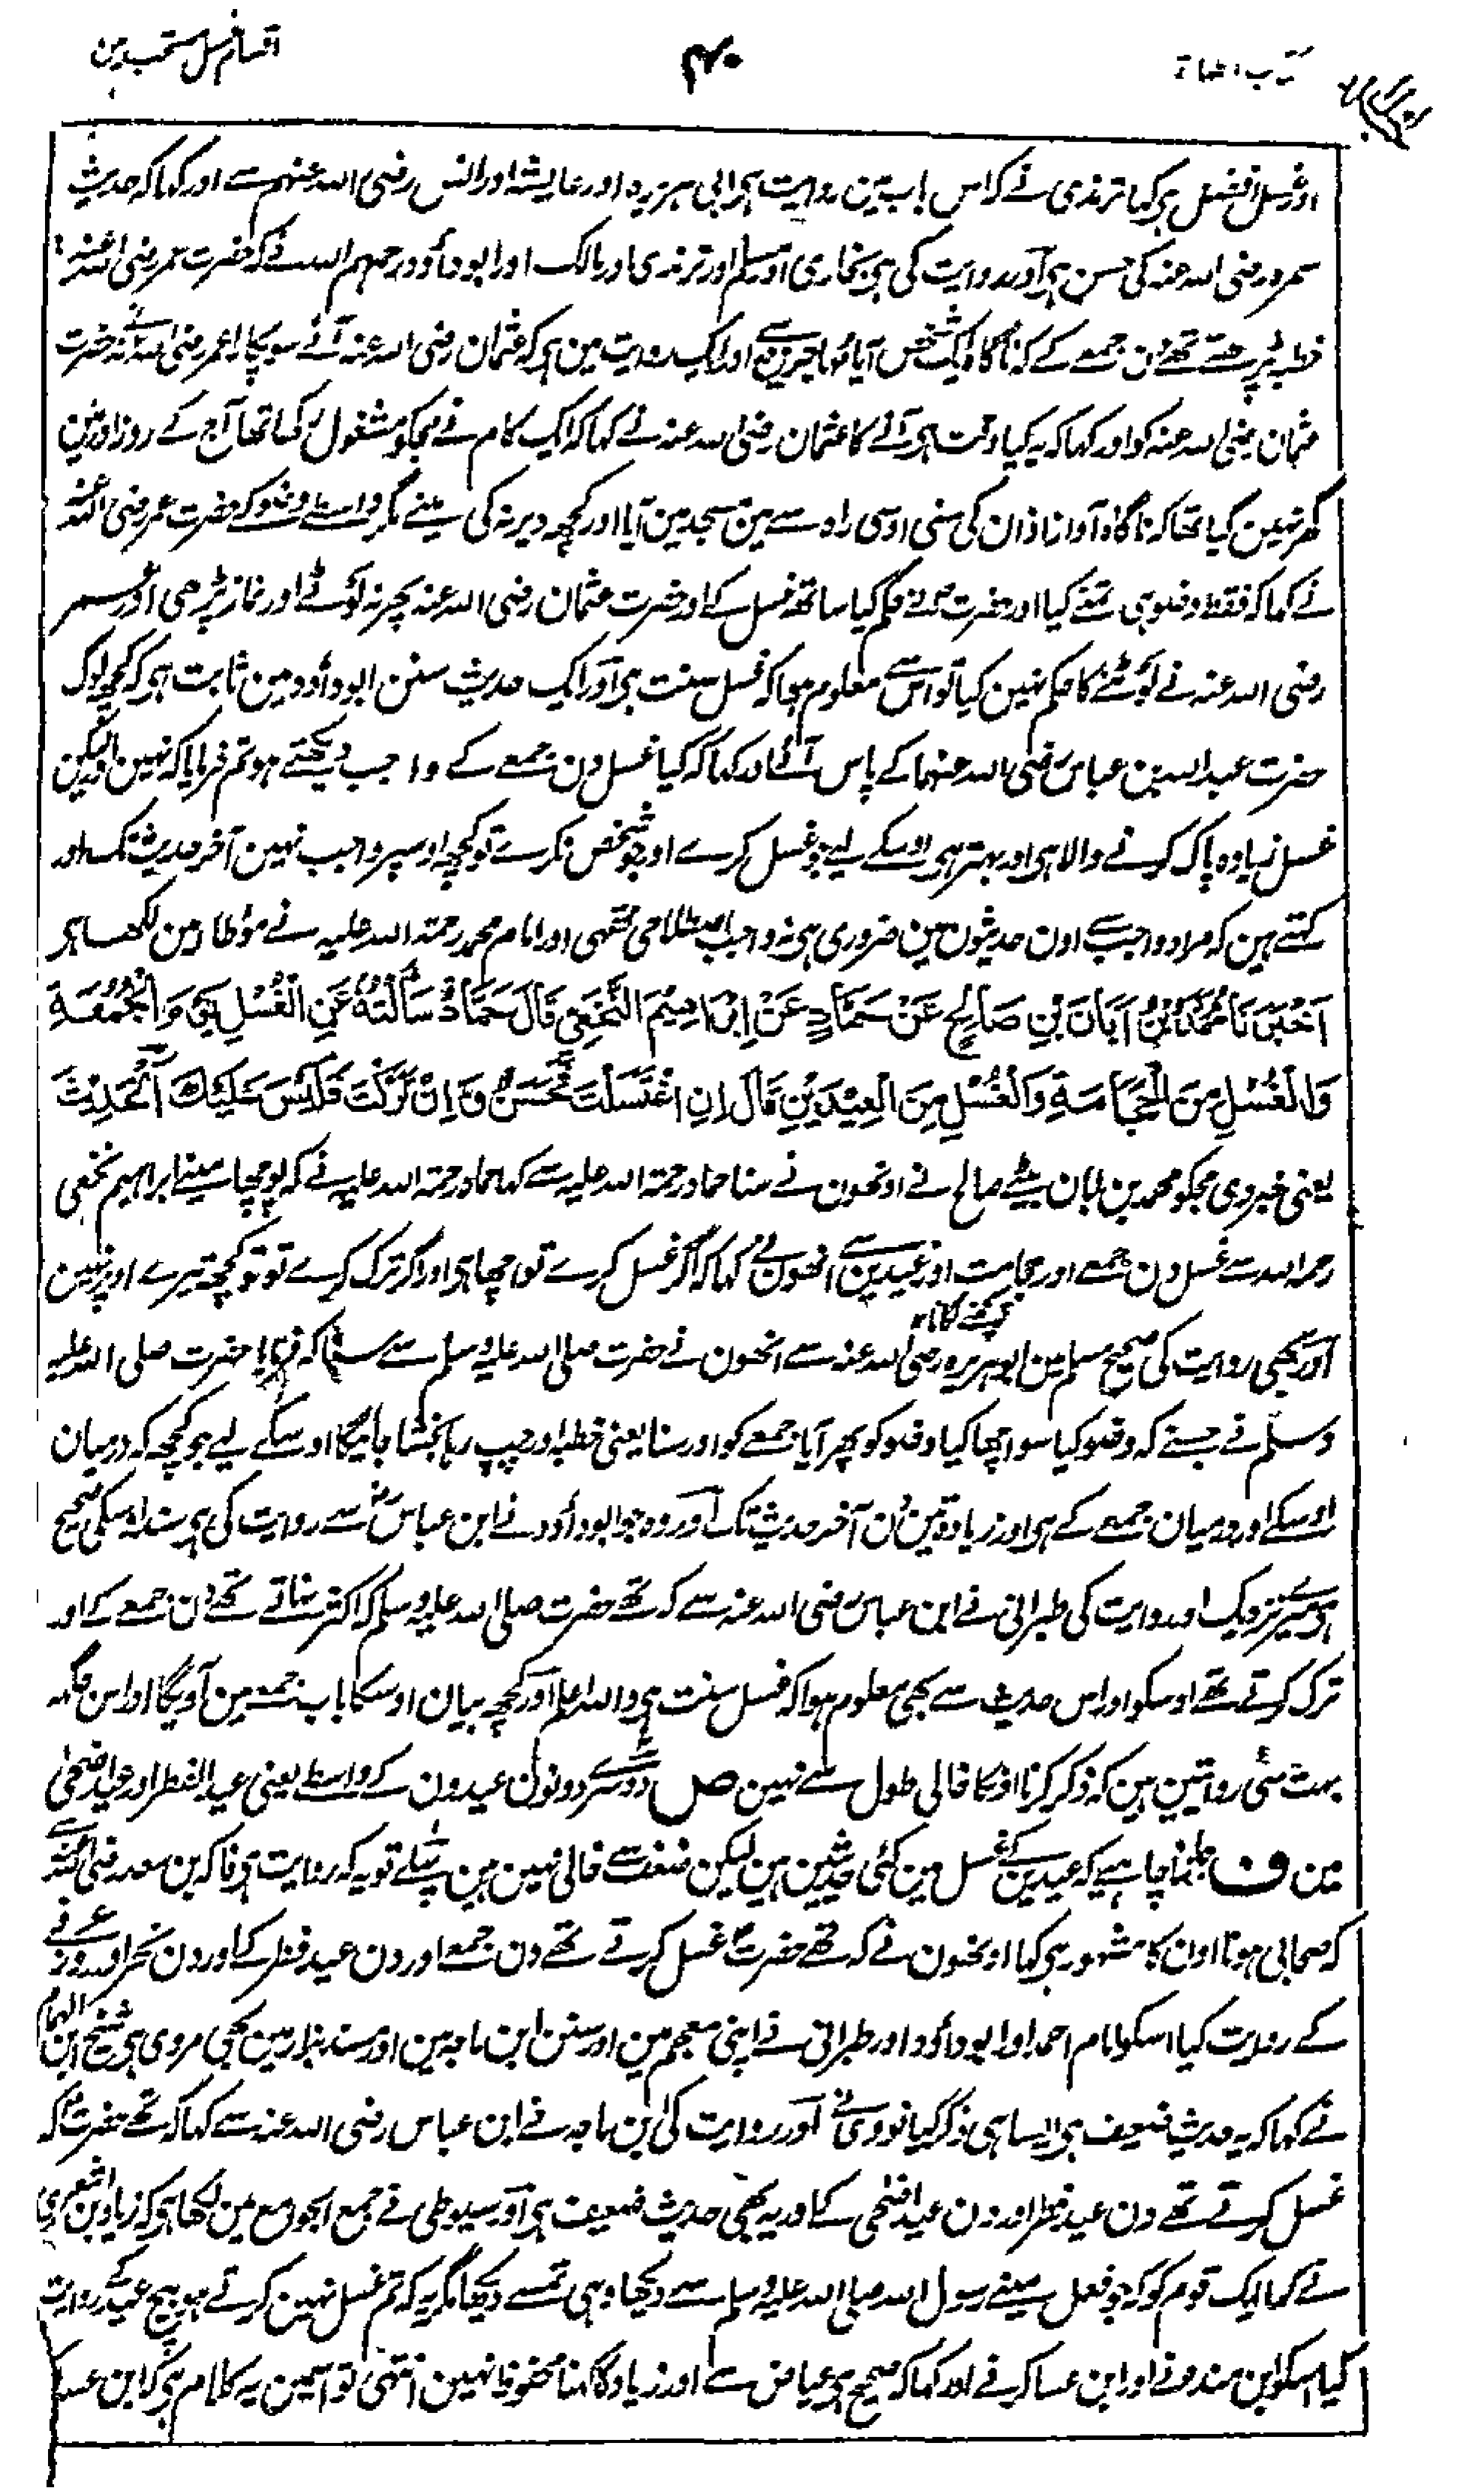 کتاب الطہارۃ
۴۰
اقسام غسل مستحب میں
اور غسل افضل ہی کہا ترمذی نے کہ اس باب مین روایت ہی ابی ہریرہ اور عایشہ اور انس رضی اللہ عنہم سے اور کہا کہ حدیث
سمرہ رضی اللہ عنہ کی حسن ہی اور روایت کی ہی بخاری اور مسلم اور ترمذی اور مالک اور ابو داؤد رحمہم اللہ نے کہ حضرت عمر رضی اللہ عنہ
خطبہ پڑہتے تھے دن جمعے کے کہ ناگاہ ایک شخص آیا مہاجرین سے اور ایک روایت مین ہی کہ عثمان رضی اللہ عنہ آئے سو پکارا عمر رضی اللہ عنہ نے حضرت
عثمان رضی اللہ عنہ کو اور کہا کہ یہ کیا وقت ہی آنے کا عثمان رضی اللہ عنہ نے کہا کہ ایک کام نے مجکو مشغول رکھا تھا آج کے روز اور مین
گھر نہین گیا تھا کہ ناگاہ آواز اذان کی سنی اوسی راہ سے مین مسجد مین آیا اور کچھ دیر نہ کی مینے مگر واسطے وضو کے حضرت عمر رضی اللہ عنہ
نے کہا کہ فقط وضو ہی تمنے کیا اور حضرت صلعم نے حکم کیا ساتھ غسل کے اور حضرت عثمان رضی اللہ عنہ پھر نہ لوٹے اور نماز پڑھی اور عمر
رضی اللہ عنہ نے لوٹنے کا حکم نہین کیا تو اس سے معلوم ہوا کہ غسل سنت ہی اور ایک حدیث سنن ابو داؤد مین ثابت ہی کہ کچھ لوگ
حضرت عبد اللہ بن عباس رضی اللہ عنہما کے پاس آئے اور کہا کہ کیا غسل دن جمعے کے واجب دیکھتے ہو تم فرمایا کہ نہین اور لیکن
غسل زیادہ پاک کرنے والا ہی اور بہتر ہی اوسکے لیے جو غسل کرے اور جو شخص نکرے تو کچھ اوسپر واجب نہین آخر حدیث تک اور
کہتے ہین کہ مراد واجب سے اون حدیثون مین ضروری ہی نہ واجب اصطلاحی فقہی اور امام محمد رحمۃ اللہ علیہ نے موطا مین لکھا ہی
اَخْبَرَنَا مُحَمَّدُ بْنُ اَبَانَ بْنِ صَالِحٍ عَنْ حَمَّادٍ عَنْ اِبْرَاهِيْمَ النَّخَعِيِّ قَالَ حَمَّادٌ سَأَلْتُهُ عَنِ الْغُسْلِ يَوْمَ الْجُمُعَةِ
وَالْغُسْلِ مِنَ الْحَجَامَةِ وَالْغُسْلِ مِنَ الْعِيْدَيْنِ قَالَ اِنِ اغْتَسَلْتَ فَحَسَنٌ وَاِنْ تَرَكْتَ فَلَيْسَ عَلَيْكَ اَلْحَدِيْثَ
یعنی خبر دی مجکو محمد بن ابان بیٹے صالح نے اونھون نے سنا حماد رحمۃ اللہ علیہ سے کہا حماد رحمۃ اللہ علیہ نے کہ پوچھا مینے ابراہیم نخعی
رحمہ اللہ سے غسل دن جمعے اور حجامت اور عیدین سے انھون نے کہا کہ اگر غسل کرے تو اچھا ہی اور اگر ترک کرے تو تو کچھ تیرے اوپر نہین
اور بھی روایت کی صحیح مسلم مین ابوہریرہ رضی اللہ عنہ سے انھون نے حضرت صلی اللہ علیہ وسلم سے سنا کہ فرمایا حضرت صلی اللہ علیہ
وسلم نے جسنے کہ وضو کیا سو اچھا کیا وضو کو پھر آیا جمعے کو اور سنا یعنی خطبہ اور چپ رہا بخشا جائیگا اوسکے لیے جو کچھ کہ درمیان
اوسکے اور درمیان جمعے کے ہی اور زیادہ تین دن آخر حدیث تک اور وہ جو ابو داؤد نے ابن عباس سے روایت کی ہی سند اوسکی صحیح
ہی میرے نزدیک اور روایت کی طبرانی نے ابن عباس رضی اللہ عنہ سے کہ تھے حضرت صلی اللہ علیہ وسلم کہ اکثر نہاتے تھے دن جمعے کے اور
ترک کرتے تھے اوسکو اور اس حدیث سے بھی معلوم ہوا کہ غسل سنت ہی واللہ اعلم اور کچھ بیان اوسکا باب جمعہ مین آویگا اور اس جگہ
بہت سی روایتین ہین کہ ذکر کرنا اونکا خالی طول سے نہین ص دوسرے دونون عیدون کے واسطے یعنی عید الفطر اور عید اضحیٰ
مین ف جاننا چاہیے کہ عیدین کے غسل مین کئی حدیثین ہین لیکن ضعف سے خالی نہین ہین پہلے تو یہ کہ روایت ہی فاکہ بن سعد رضی اللہ عنہ سے
کہ صحابی ہونا اون کا مشہور ہی کہا اونھون نے کہ تھے حضرت غسل کرتے تھے دن جمعہ اور دن عید فطر کے اور دن نحر اور روز عرفے
کے روایت کیا اسکو امام احمد اور ابو داؤد اور طبرانی نے اپنی معجم مین اور سنن ابن ماجہ مین اور مسند بزار مین بھی مروی ہی شیخ ابن الہمام
نے کہا کہ یہ حدیث ضعیف ہی ایسا ہی ذکر کیا نووی نے اور روایت کی ابن ماجہ نے ابن عباس رضی اللہ عنہ سے کہا کہ تھے حضرت کہ
غسل کرتے تھے دن عید فطر اور دن عید اضحیٰ کے اور یہ بھی حدیث ضعیف ہی اور سیوطی نے جمع الجوامع مین لکھا ہی کہ زیاد بن اشعری
نے کہا ایک قوم کو کہ جو فعل مینے رسول اللہ صلی اللہ علیہ وسلم سے دیکھا وہی تمسے دیکھا مگر یہ کہ تم غسل نہین کرتے ہو بیچ عید کے روایت
کیا اسکو ابن مندہ نے اور ابن عساکر نے اور کہا کہ صحیح ہی عیاض سے اور زیاد کا کہنا محفوظ نہین انتہیٰ تو اسمین یہ کلام ہی کہ ابن عساکر